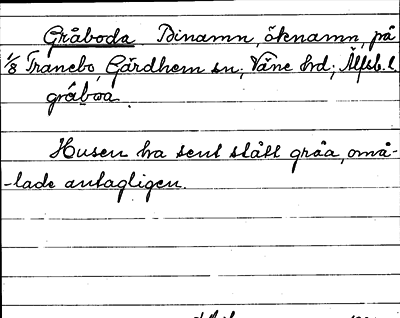 Gråboda Binamn, öknamn, på
1/8 Tranebo, Gärdhem sn, Väne hd; Älfsb. l.
gråboa.
Husen ha sent stått gråa, omå-
-lade antagligen.